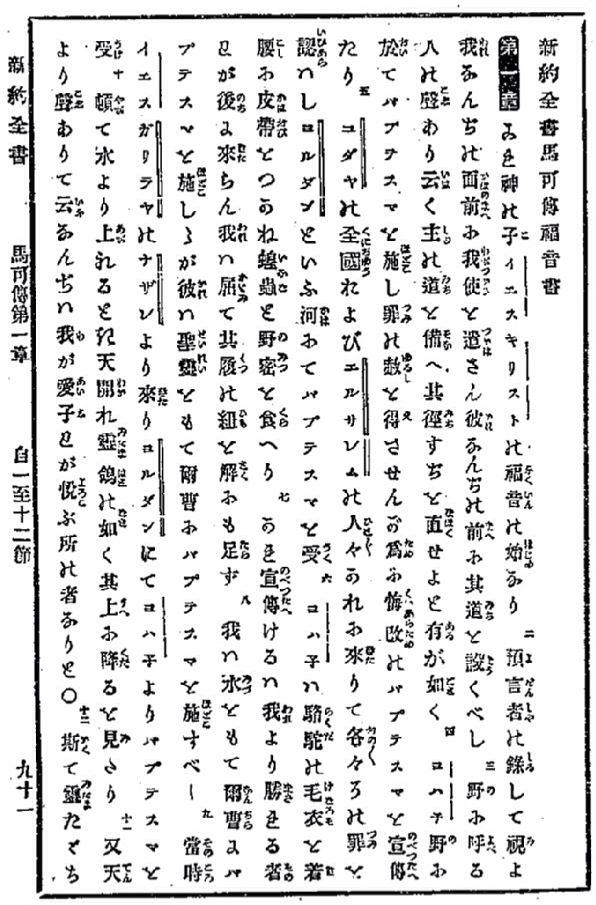 新約全書馬可傳福音書
第一章 これ神の子イエスキリストの福音の始なり 二 預言者の錄して視よ
我なんぢの面前に我使を遣さん彼なんぢの前に其道を設くべし 三 野に呼る
人の聲あり云く主の道を備へ其徑すぢを直せよと有が如く 四 ヨハ子野に
於てバプテスマを施し罪の赦を得させんが爲に悔改のバプテスマを宣傳
たり 五 ユダヤの全國およびエルサレムの人々かれに來りて各々その罪を
認はしヨルダンといふ河にてバプテスマを受 六 ヨハ子は駱駝の毛衣を着
腰に皮帶をつかね蝗蟲と野蜜を食へり 七 かれ宣傳けるは我より勝れる者
わが後に來らん我は屈て其履の紐を解にも足ず 八 我は水をもて爾曹にバ
プテスマを施しゝが彼は聖靈をもて爾曹にバプテスマを施すべし 九 當時
イエスガリラヤのナザレより來りヨルダンにてヨハ子よりバプテスマを
受 十 頓て水より上れるとき天開れ靈鴿の如く其上に降るを見たり 十一 又天
より聲ありて云なんぢは我が愛子わが悅ぶ所の者なりと〇 十二 斯て靈たゞち
新約全書 馬可傳第一章 自一至十二節 九十一